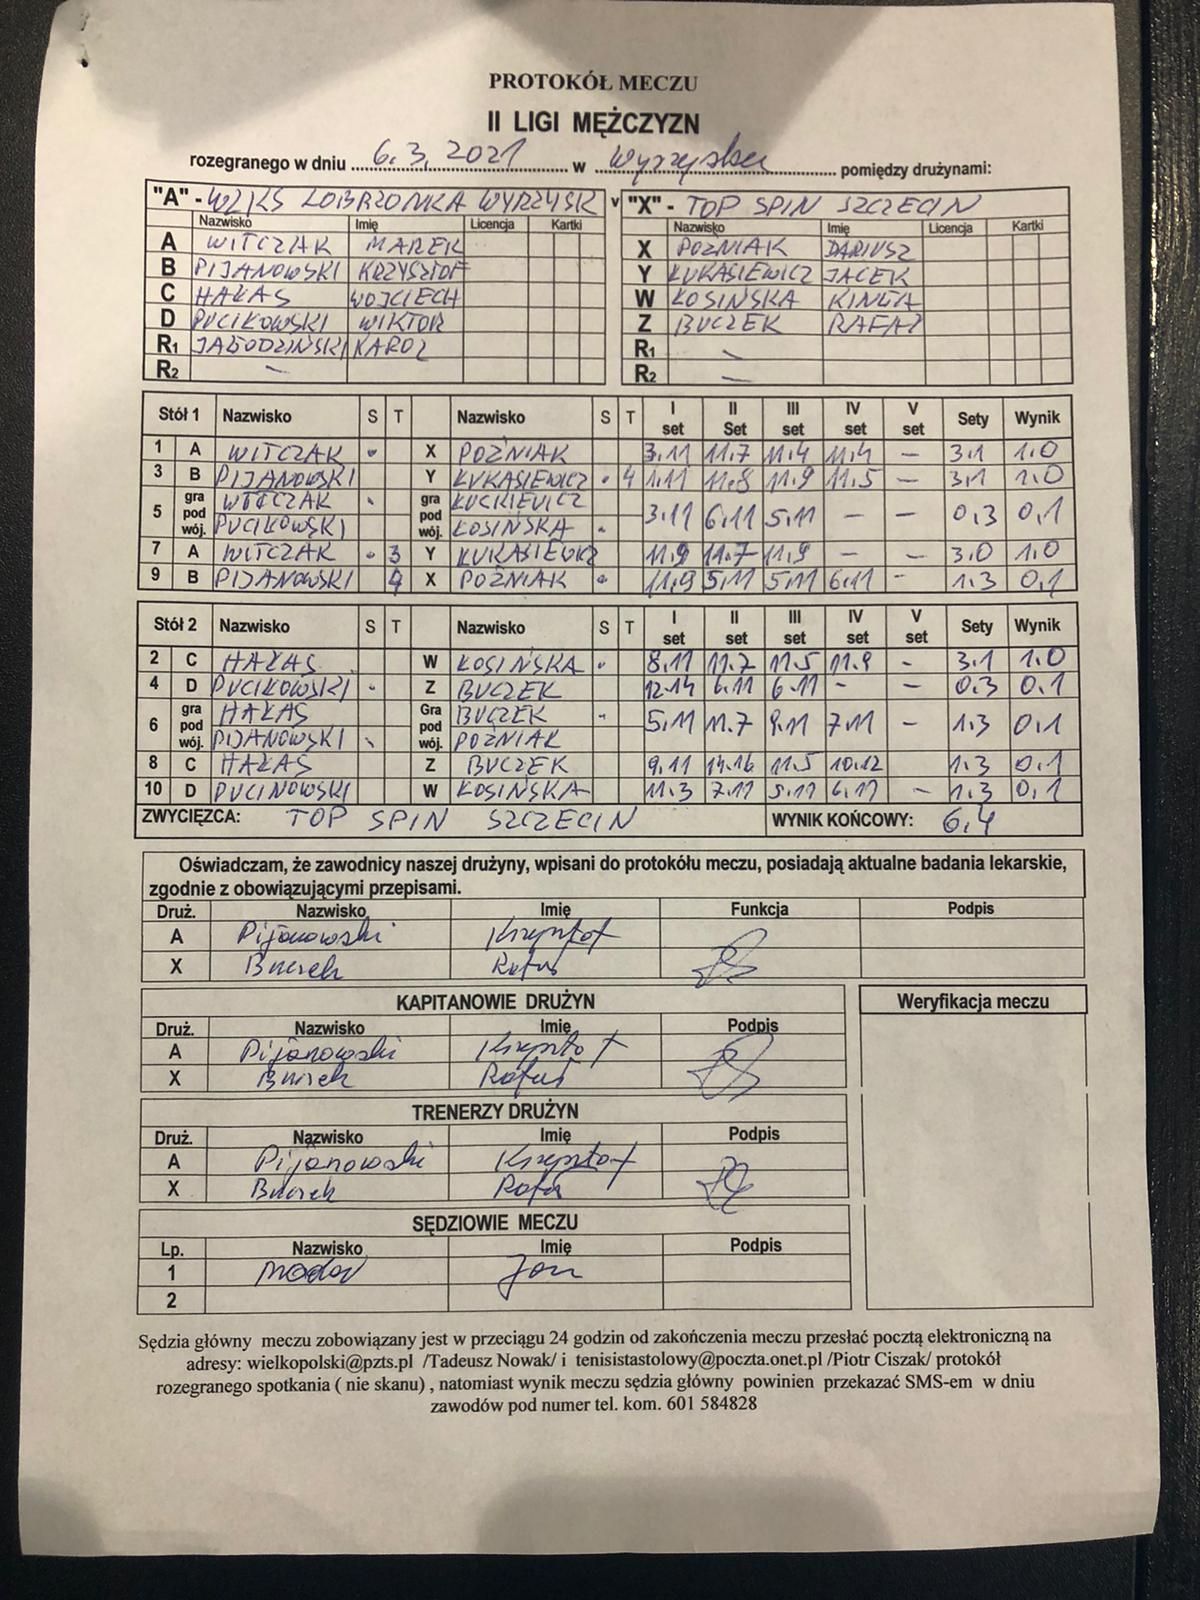 PROTOKÓŁ MECZU
II LIGI MĘŻCZYZN
rozegranego w dniu 6.3.2021 w Wyrzysku pomiędzy drużynami:
"A" - WZKS ŁOBRZONKA WYRZYSK v "X" - TOP SPIN SZCZECIN
Nazwisko Imię Licencja Kartki Nazwisko Imię Licencja Kartki
A WITCZAK MAREK X POŹNIAK DARIUSZ
B PIJANOWSKI KRZYSZTOF Y ŁUKASIEWICZ JACEK
C HAŁAS WOJCIECH W ŁOSIŃSKA KINGA
D PUCIKOWSKI WIKTOR Z BUCZEK RAFAŁ
R1 JAGODZIŃSKI KAROL R1 -
R2 - R2 -
Stół 1 Nazwisko S T Nazwisko S T I set II Set III set IV set V set Sety Wynik
1 A WITCZAK . X POŹNIAK 3.11 11.7 11.4 11.4 - 3.1 1.0
3 B PIJANOWSKI Y ŁUKASIEWICZ . 4 1.11 11.8 11.9 11.5 - 3.1 1.0
5 gra pod wój. WITCZAK . gra pod wój.
PUCIKOWSKI ŁOSIŃSKA . 3.11 6.11 5.11 - - 0.3 0.1
7 A WITCZAK . 3 Y ŁUKASIEWICZ 11.9 11.7 11.9 - - 3.0 1.0
9 B PIJANOWSKI 4 X POŹNIAK . 11.9 5.11 5.11 6.11 - 1.3 0.1
Stół 2 Nazwisko S T Nazwisko S T I set II set III set IV set V set Sety Wynik
2 C HAŁAS . W ŁOSIŃSKA . 8.11 11.7 11.5 11.9 - 3.1 1.0
4 D PUCIKOWSKI . Z BUCZEK 12.14 6.11 6.11 - - 0.3 0.1
6 gra pod wój. HAŁAS Gra pod wój. BUCZEK .
PIJANOWSKI . POŹNIAK 5.11 11.7 9.11 7.11 - 1.3 0.1
8 C HAŁAS Z BUCZEK 9.11 14.16 11.5 10.12 1.3 0.1
10 D PUCINOWSKI W ŁOSIŃSKA 11.3 7.11 5.11 6.11 - 1.3 0.1
ZWYCIĘZCA: TOP SPIN SZCZECIN WYNIK KOŃCOWY: 6.4
Oświadczam, że zawodnicy naszej drużyny, wpisani do protokółu meczu, posiadają aktualne badania lekarskie,
zgodnie z obowiązującymi przepisami.
Druż. Nazwisko Imię Funkcja Podpis
A Pijanowski Krzysztof
X Buczek Rafał
KAPITANOWIE DRUŻYN Weryfikacja meczu
Druż. Nazwisko Imię Podpis
A Pijanowski Krzysztof
X Buczek Rafał
TRENERZY DRUŻYN
Druż. Nazwisko Imię Podpis
A Pijanowski Krzysztof
X Buczek Rafał
SĘDZIOWIE MECZU
Lp. Nazwisko Imię Podpis
1 Jan
2
Sędzia główny meczu zobowiązany jest w przeciągu 24 godzin od zakończenia meczu przesłać pocztą elektroniczną na
adresy: wielkopolski@pzts.pl /Tadeusz Nowak/ i tenisistastolowy@poczta.onet.pl /Piotr Ciszak/ protokół
rozegranego spotkania ( nie skanu) , natomiast wynik meczu sędzia główny powinien przekazać SMS-em w dniu
zawodów pod numer tel. kom. 601 584828